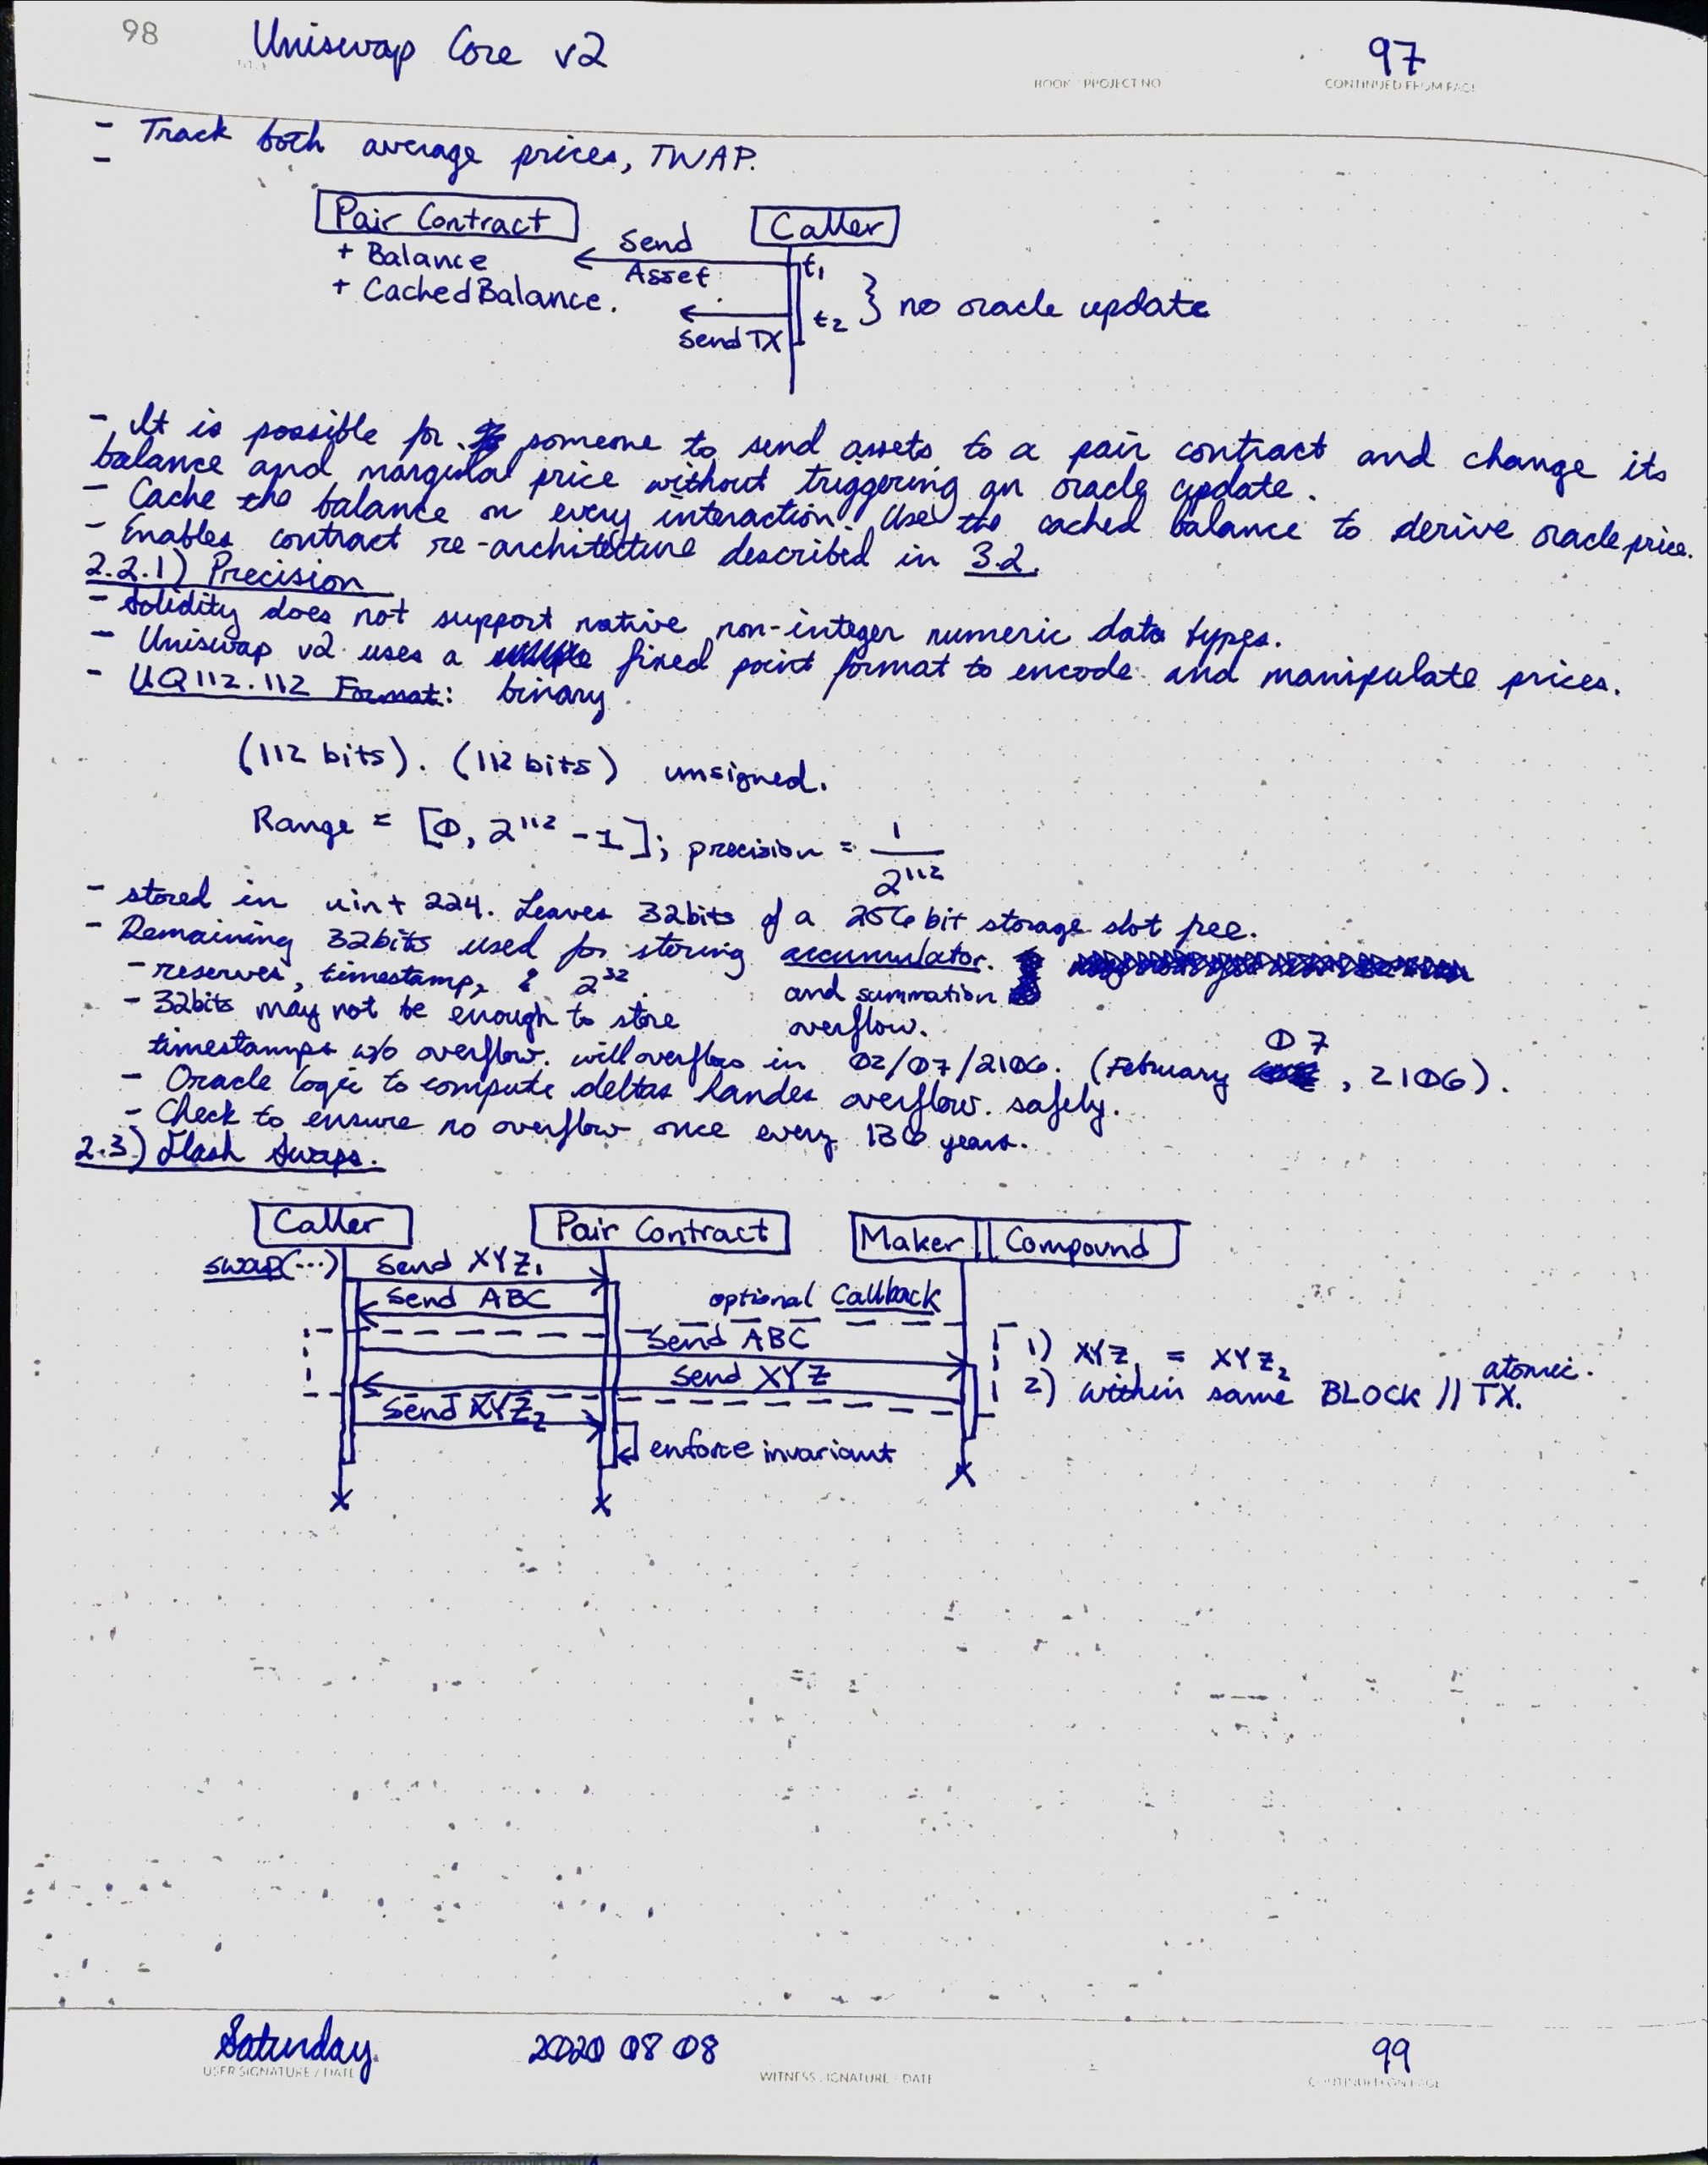 98
Uniswap Core v2
97
BOOK / PROJECT NO
CONTINUED FROM PAGE
- Track both average prices, TWAP.
-
Pair Contract
Caller
+ Balance
+ CachedBalance.
Send
Asset
t1
t2
Send TX
} no oracle update
- It is possible for someone to send assets to a pair contract and change its
balance and marginal price without triggering an oracle update.
- Cache the balance on every interaction. Use the cached balance to derive oracle price.
- Enables contract re-architecture described in 3.2.
2.2.1) Precision
- Solidity does not support native non-integer numeric data types.
- Uniswap v2 uses a fixed point format to encode and manipulate prices.
- UQ112.112 Format: binary.
(112 bits). (112 bits) unsigned.
Range = [0, 2^112 - 1]; precision = 1/2^112
- stored in uint 224. Leaves 32bits of a 256 bit storage slot free.
- Remaining 32bits used for storing accumulator.
and summation
overflow.
- reserves, timestamp, & 2^32
- 32bits may not be enough to store
timestamps w/o overflow. will overflow in 02/07/2106. (February 07, 2106).
- Oracle logic to compute deltas handes overflow safely.
- Check to ensure no overflow once every 130 years.
2.3) Flash Swaps.
Caller
Pair Contract
Maker || Compound
swap(...)
Send XYZ1
Send ABC
optional Callback
Send ABC
Send XYZ
Send XYZ2
enforce invariant
1) XYZ1 = XYZ2
2) within same BLOCK // TX.
atomic.
Saturday
2020 08 08
99
USER SIGNATURE / DATE
WITNESS SIGNATURE / DATE
CONTINUED ON PAGE